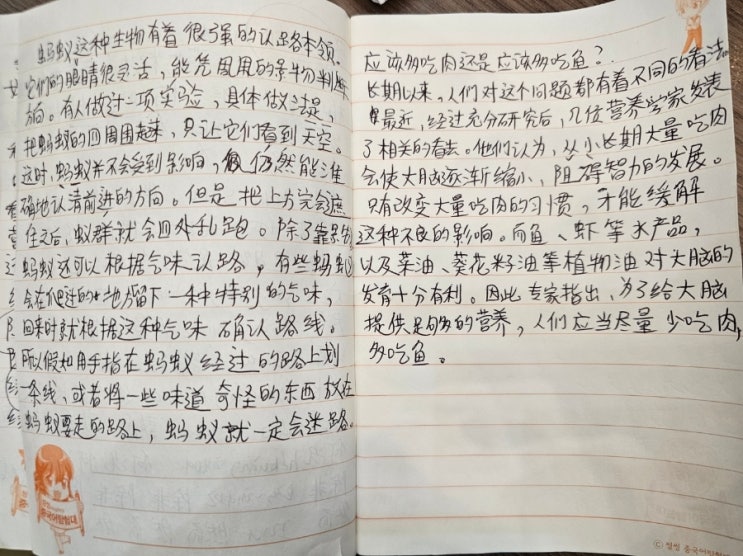 蚂蚁这种生物有着很强的认路本领。
它们的眼睛很灵活，能凭周围的景物判断
方向。有人做过一项实验，具体做法是，
把蚂蚁的四周围起来，只让它们看到天空。
这时，蚂蚁并不会受到影响，仍然能准
确地认清前进的方向。但是把上方完全遮
住之后，蚁群就会四处乱跑。除了靠景物
蚂蚁还可以根据气味认路，有些蚂蚁
会在爬过的地方留下一种特别的气味，
回来时就根据这种气味确认路线。
所以假如用手指在蚂蚁经过的路上划
一条线、或者将一些味道奇怪的东西放在
蚂蚁要走的路上，蚂蚁就一定会迷路。
应该多吃肉还是应该多吃鱼？
长期以来，人们对这个问题都有着不同的看法
最近，经过充分研究后，几位营养学家发表
了相关的看法。他们认为，从小长期大量吃肉
会使大脑逐渐缩小，阻碍智力的发展。
只有改变大量吃肉的习惯，才能缓解
这种不良的影响。而鱼、虾等水产品，
以及菜油、葵花籽油等植物油对大脑的
发育十分有利。因此专家指出，为了给大脑
提供足够多的营养，人们应当尽量少吃肉，
多吃鱼。
중국어탐험대